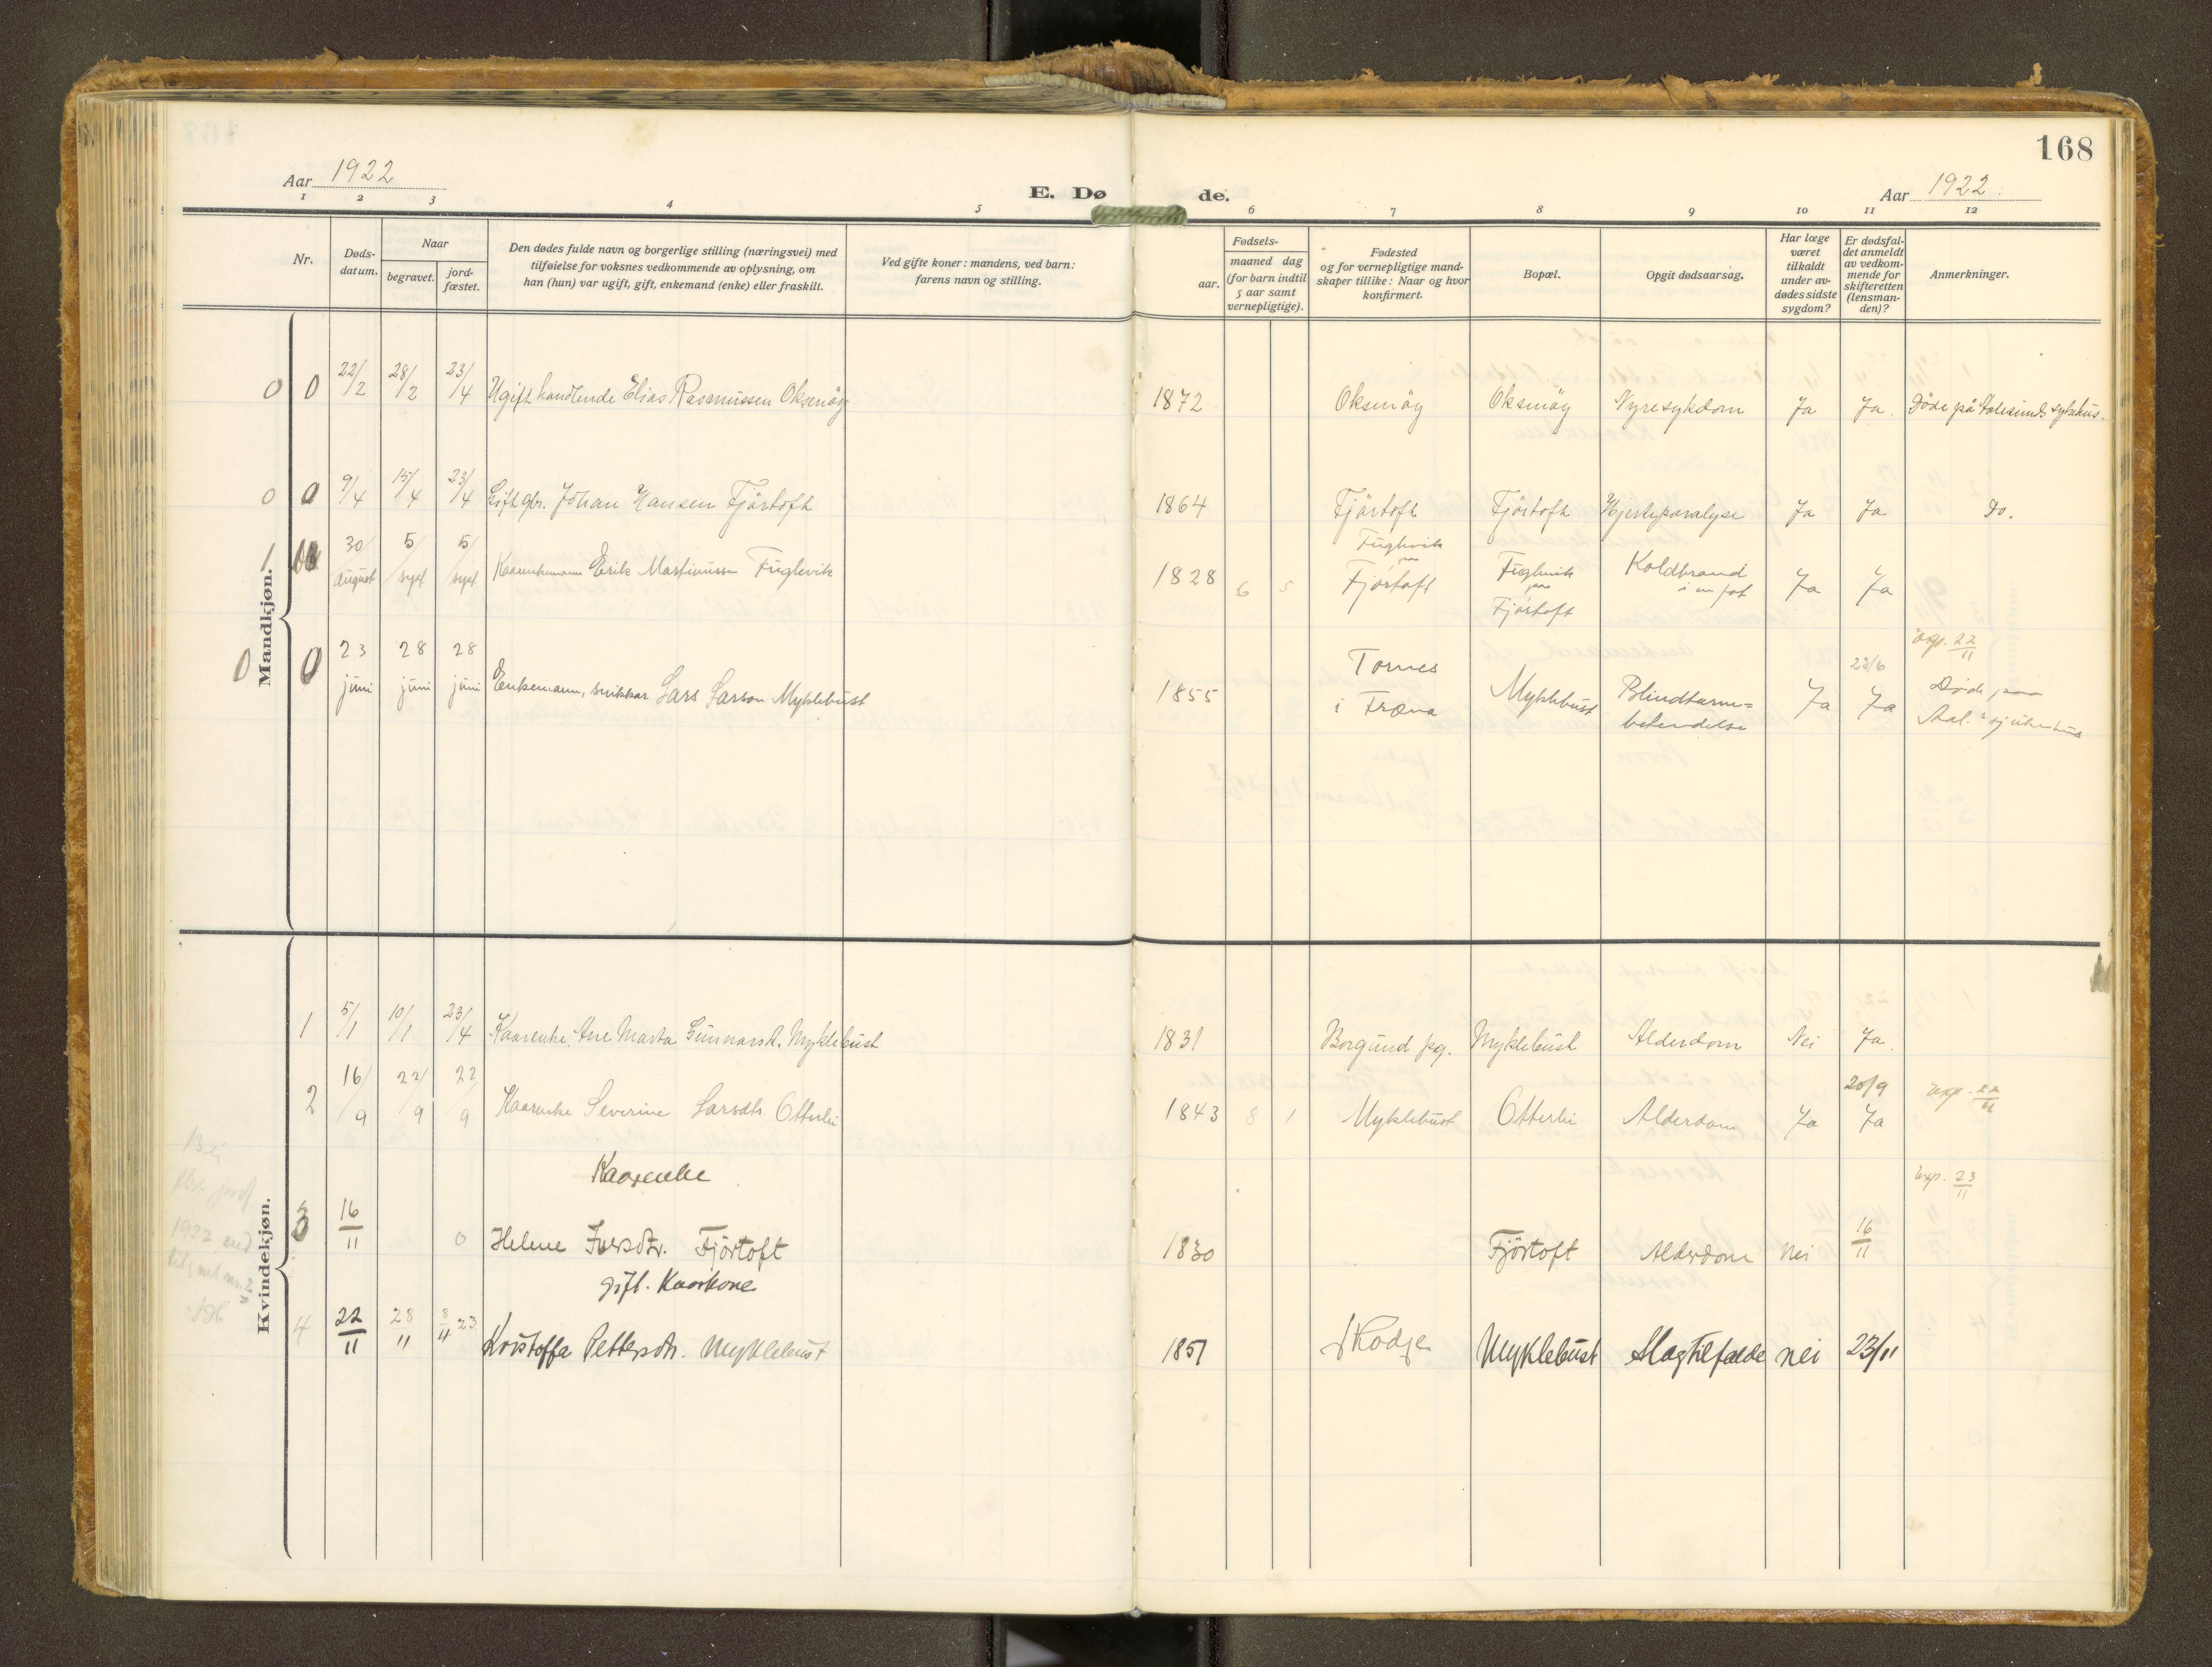 168
Aar 1922
E. Dø de.
Aar 1922.
1 2 3 4 5 6 7 8 9 10 11 12
Nr.
Døds-
datum.
Naar
begravet.
jord-
fæstet.
Den dødes fulde navn og borgerlige stilling (næringsvei) med
tilføielse for voksnes vedkommende av oplysning, om
han (hun) var ugift, gift, enkemand (enke) eller fraskilt.
Ved gifte koner: mandens, ved barn:
farens navn og stilling.
Fødsels-
aar.
maaned dag
(for barn indtil
5 aar samt
vernepligtige).
Fødested
og for vernepligtige mand-
skaper tillike: Naar og hvor
konfirmert.
Bopæl.
Opgit dødsaarsag.
Har læge
været
tilkaldt
under av-
dødes sidste
sygdom?
Er dødsfal-
det anmeldt
av vedkom-
mende for
skifteretten
(lensman-
den)?
Anmerkninger.
Mandkjøn.
0 0 22/2 28/2 23/4 Ugift handlende Elias Rasmussen Oksenöy 1872 Oksenöy Oksenöy Nyresykdom Ja Ja. Döde på Aalesunds sykehus.
0 0 9/4 15/4 23/4 Gift gbr. Johan Hansen Fjörtoft 1864 Fjörtoft Fjörtoft Hjerteparalyse Ja Ja Do.
1 30/august 5/sept 5/sept Kaarenkemann Erik Martinussen Fuglevik 1828 6 5 Fuglevik
paa
Fjörtoft
Fuglevik
paa
Fjörtoft
Koldbrand
i en fot
Ja Ja
0 0 23 juni 28 juni 28 juni Enkemann, snikkar Lars Larson Myklebust 1855 Tornes
i Fræna
Myklebust Blindtarm=
betendelse
Ja 23/6
Ja
utgp. 22/11
Döde paa
Aal. sjukehus
Kvindekjøn.
1 5/1 10/1 23/4 Kaarenke Ane Marta Gunnarsd. Myklebust 1831 Borgund pg. Myklebust Alderdom Nei Ja.
2 16/9 22/9 22/9 Kaarenke Severine Larsdtr. Otterlei 1843 8 1 Myklebust Otterlei Alderdom Ja 20/9
Ja
utgp. 22/11
Kaarenke
3 16/11 0 Helene Iversdtr. Fjörtoft 1830 Fjörtoft Alderdom nei 16/11
utgp. 23/11
gift. Kaarkone
4 22/11 28/11 8/4 23 Kristoffa Pettersdtr. Myklebust 1851 Skodje Myklebust Slagtilfælde nei 23/11
1922